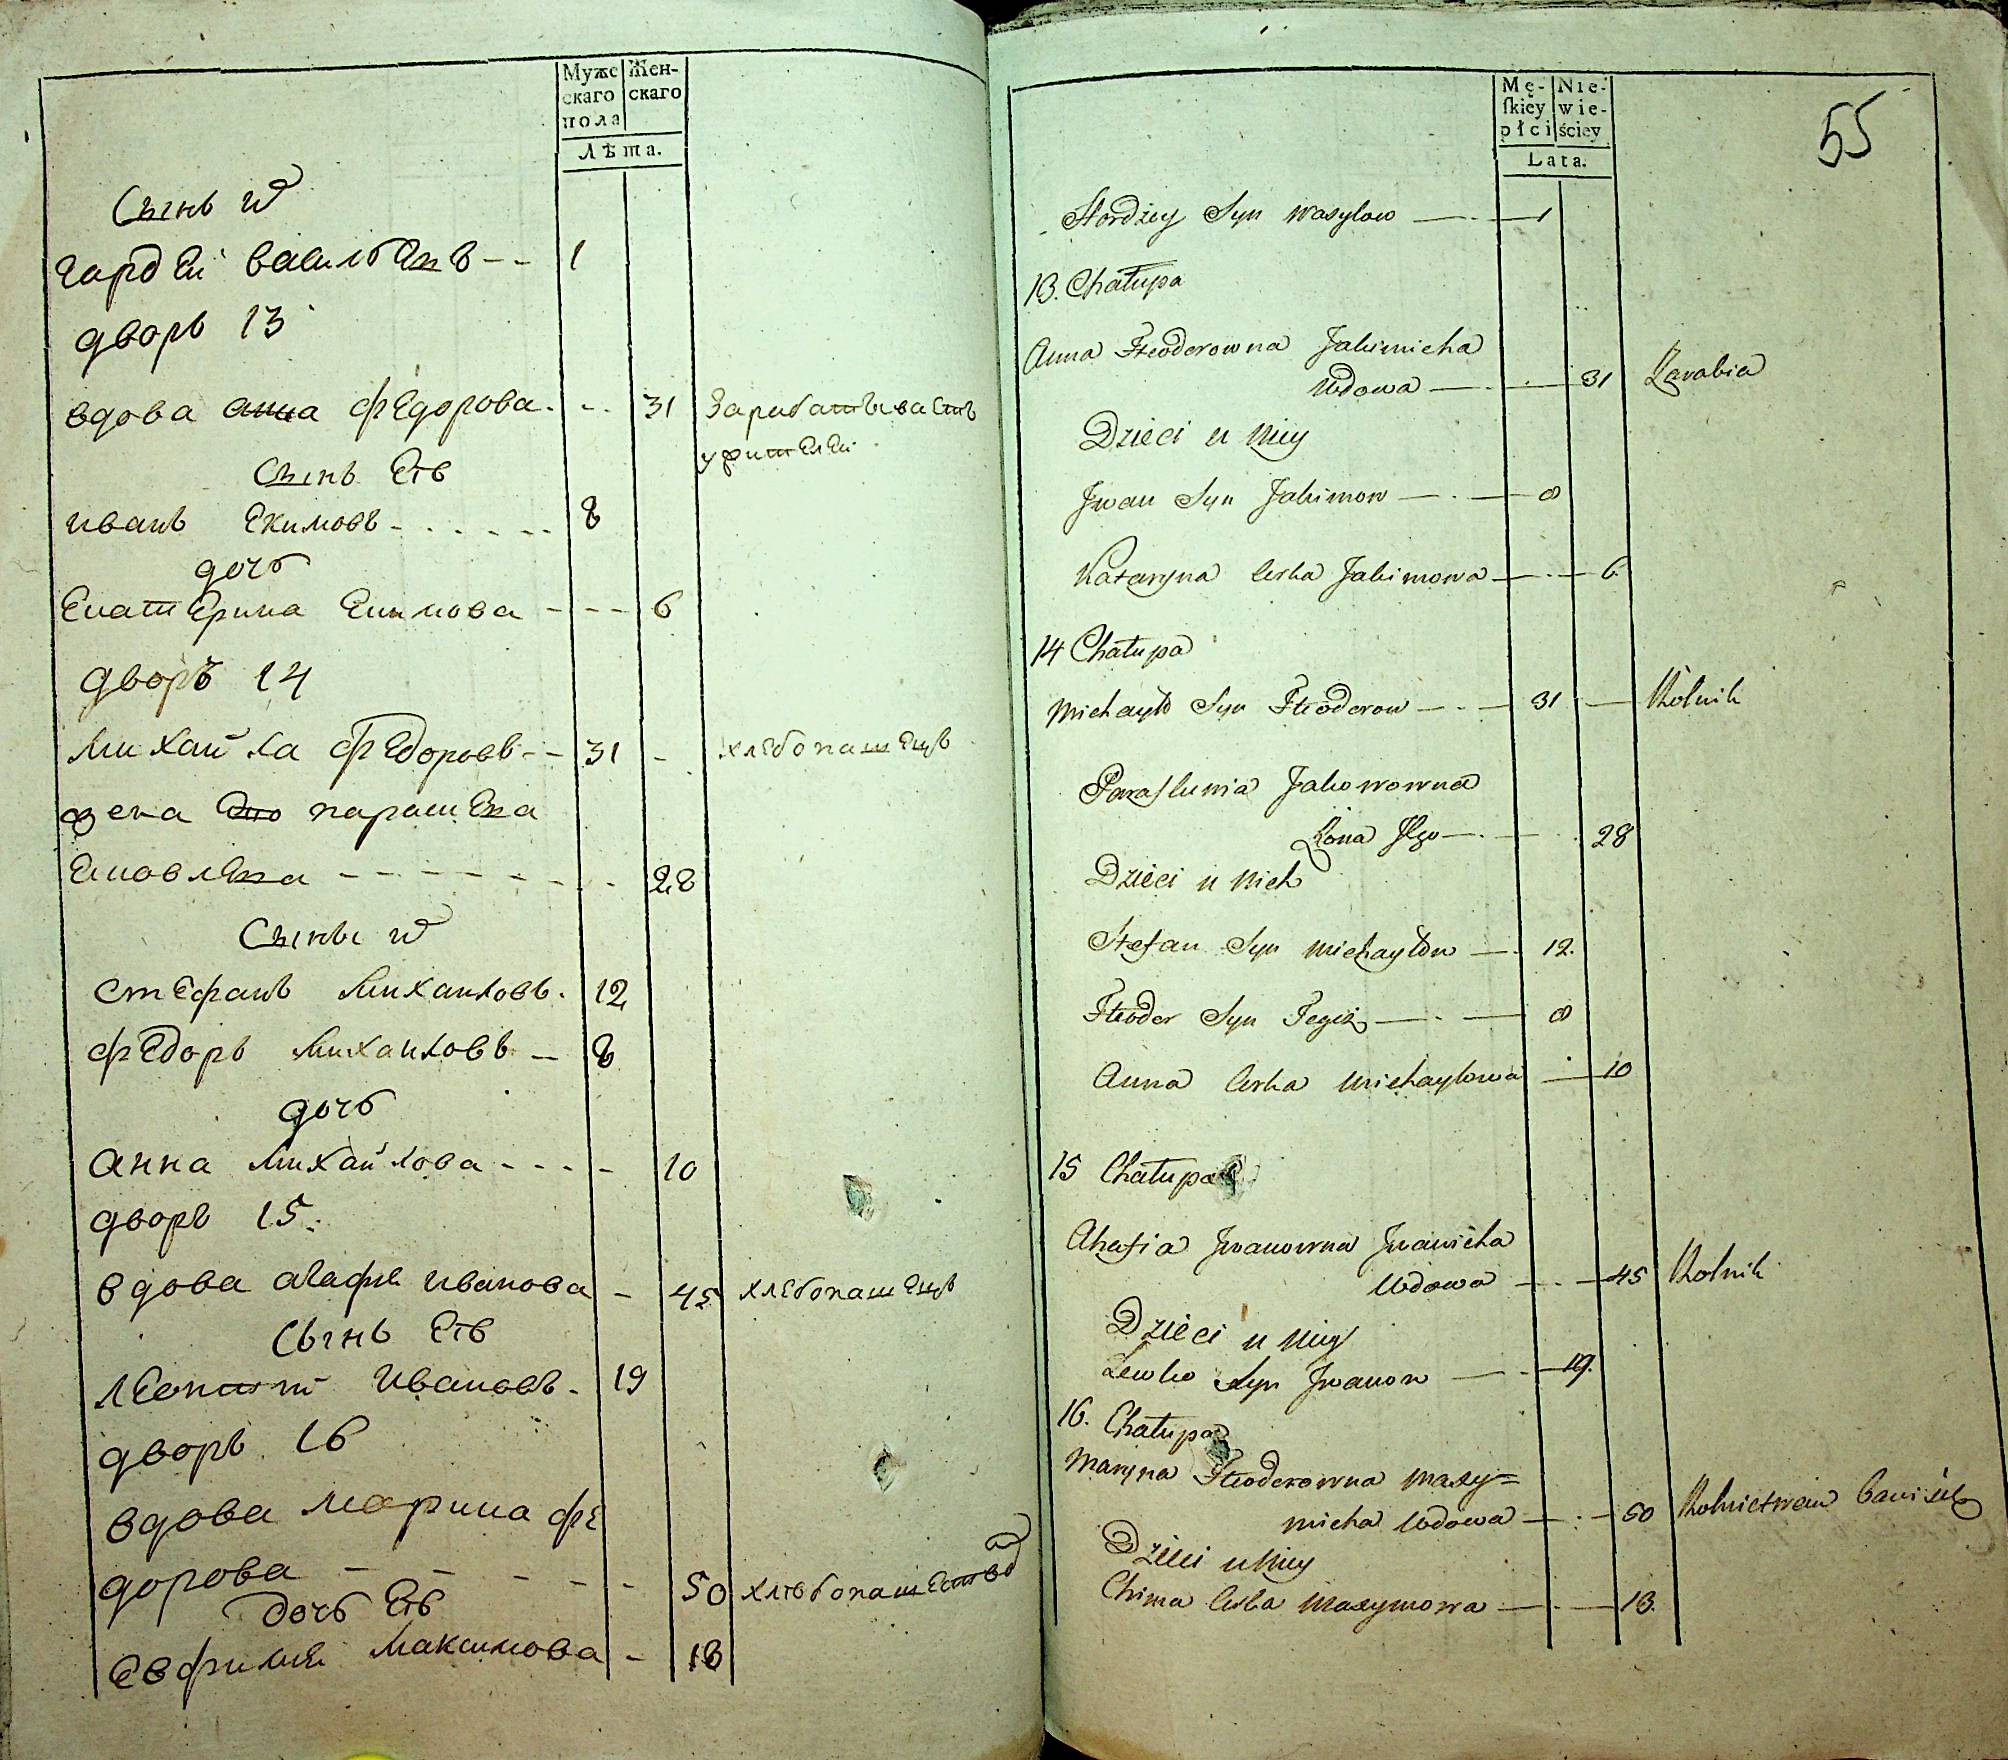 Муже
скаго
пола
Жен-
скаго
Лѣта.
Сынъ
гардей васильевъ -- 1
дворъ 13
вдова анна федорова. -- 31 Зарабатываетъ
Сынъ Евъ
иванъ Екимовъ - - - - - - 8
дочь
Екатерина Екимова - - - - 6
дворъ 14
михайла федоровъ -- 31 - хлебопашецъ
жена Ево парашева
- - - - - - - 28
Сыны
стефанъ михаиловъ. 12
федоръ михаиловъ - 8
дочь
анна михайлова - - - - 10
дворъ 15.
вдова агафя иванова - 45 хлебопашецъ
Сынъ Евъ
иванова. 19
дворъ 16
вдова марина фе
дорова - - - - - 50
дочь Евъ
Евфимия максимова - 18
Mę-
skiey
płci
Nie-
wie-
ściey
Lata.
55
Hordziey Syn Wasylow — 1
13. Chałupa
Anna Fteodorowna Jakimicha
Wdowa — 31 Zarabia
Dzieci u Niey
Jwan Syn Jakimow — 8
Kataryna Corka Jakimowa — 6.
14 Chałupa
Michayło Syn Fteodorow — 31 — Rolnik
Paraskiewia Jakowowna
Żona Jego — 28
Dzieci u Nich
Stefan Syn Michayłow — 12.
Fteodor Syn Tegoż — 8
Anna Corka Michayłowa — 10
15 Chałupa
Ahafia Jwanowna Jwanicha
Wdowa — 45 Rolnik
Dzieci u Niey
Lewko Syn Jwanow — 19.
16. Chałupa
Maryna Fteodorowna Maxy=
micha Wdowa — 50 Rolnictwem bawi się
Dzieci u Niey
Chima Corka Maxymowa — 18.